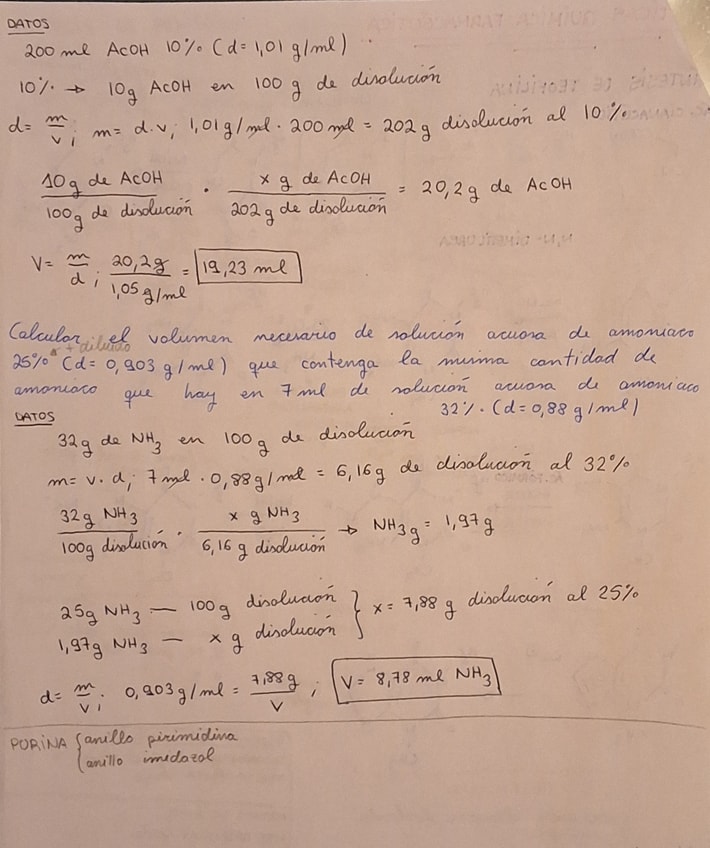 DATOS
200 ml AcOH 10% (d= 1,01 g/ml)
10% → 10g AcOH en 100 g de disolución
d= m/v ; m= d.v; 1,01 g/ml · 200 ml = 202 g disolución al 10%
10g de AcOH / 100g de disolución · x g de AcOH / 202 g de disolución = 20,2 g de AcOH
V= m/d ; 20,2g / 1,05 g/ml = 19,23 ml
Calcular el volumen necesario de solución acuosa de amoniaco
+ diluido
25% (d= 0,903 g/ml) que contenga la misma cantidad de
amoniaco que hay en 7 ml de solución acuosa de amoniaco
32%. (d= 0,88 g/ml)
DATOS
32g de NH3 en 100g de disolución
m= v. d; 7 ml · 0,88 g/ml = 6,16 g de disolución al 32%
32g NH3 / 100g disolución · x g NH3 / 6,16 g disolución → NH3 g = 1,97 g
25g NH3 — 100g disolución } x= 7,88 g disolución al 25%
1,97g NH3 — x g disolución
d= m/v ; 0,903 g/ml = 7,88g / V ; V= 8,78 ml NH3
PURINA { anillo pirimidina
anillo imidazol